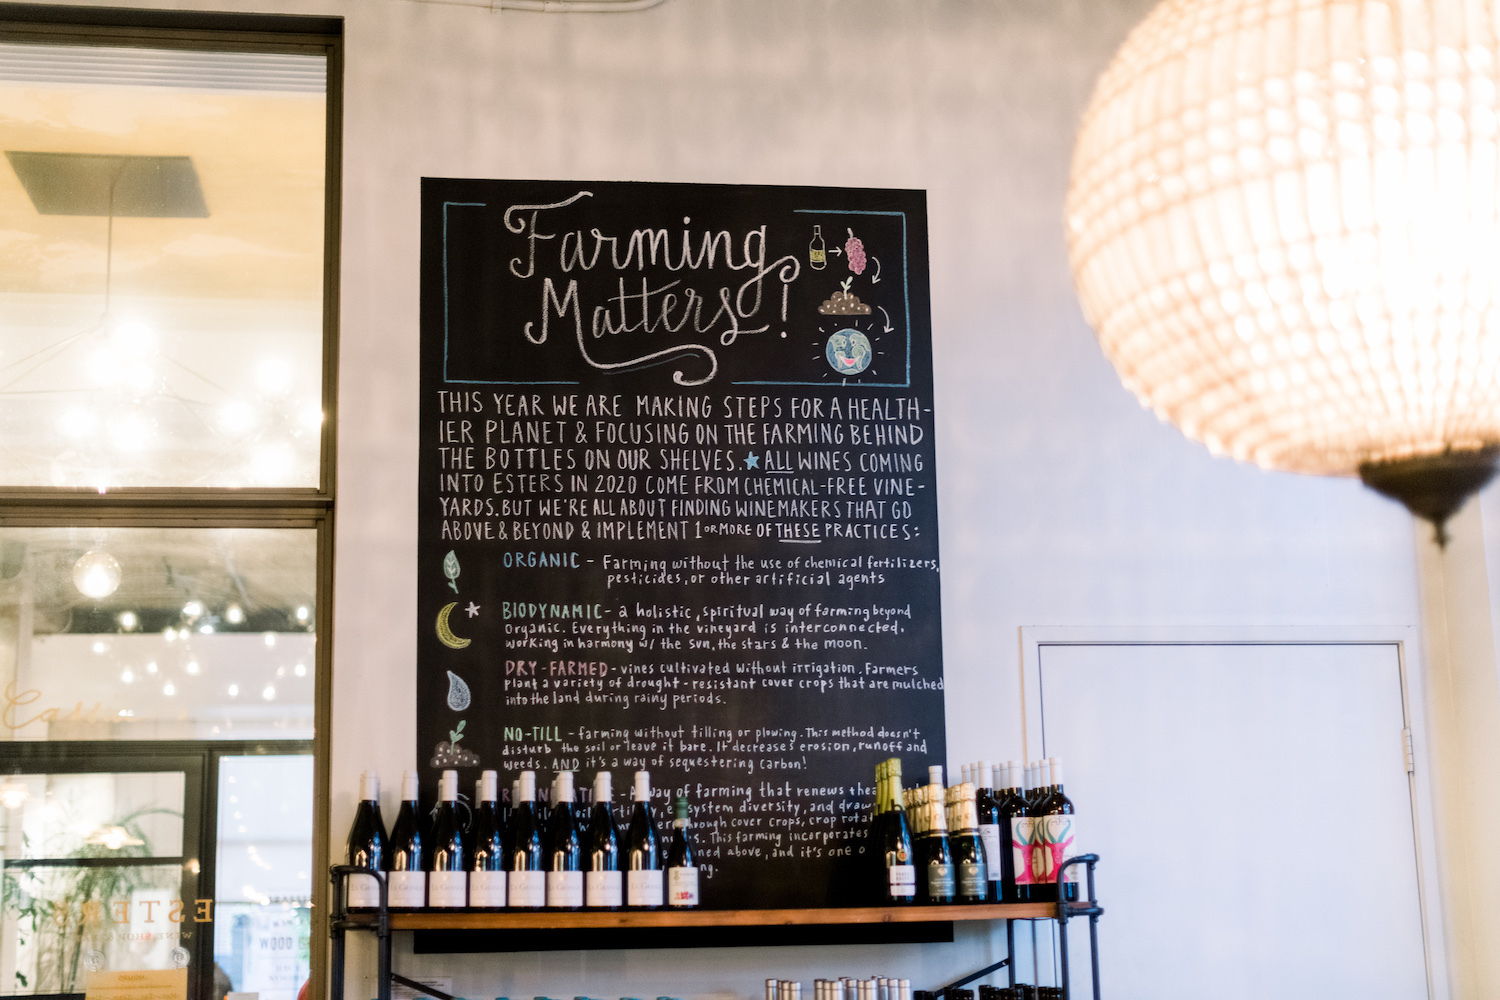 Farming
Matters!
THIS YEAR WE ARE MAKING STEPS FOR A HEALTH-
IER PLANET & FOCUSING ON THE FARMING BEHIND
THE BOTTLES ON OUR SHELVES. ★ ALL WINES COMING
INTO ESTERS IN 2020 COME FROM CHEMICAL-FREE VINE-
YARDS. BUT WE'RE ALL ABOUT FINDING WINEMAKERS THAT GO
ABOVE & BEYOND & IMPLEMENT 1 OR MORE OF THESE PRACTICES:
ORGANIC - Farming without the use of chemical fertilizers,
pesticides, or other artificial agents
BIODYNAMIC - a holistic, spiritual way of farming beyond
organic. Everything in the vineyard is interconnected.
working in harmony w/ the sun, the stars & the moon.
DRY-FARMED - vines cultivated without irrigation. Farmers
plant a variety of drought-resistant cover crops that are mulched
into the land during rainy periods.
NO-TILL - farming without tilling or plowing. This method doesn't
disturb the soil or leave it bare. It decreases erosion, runoff and
weeds. AND it's a way of sequestering carbon!
- A way of farming that renews
system diversity, and
through cover crops, crop
This farming incorporates
above, and it's one
ESTERS
WINE SHOP &
WOOD